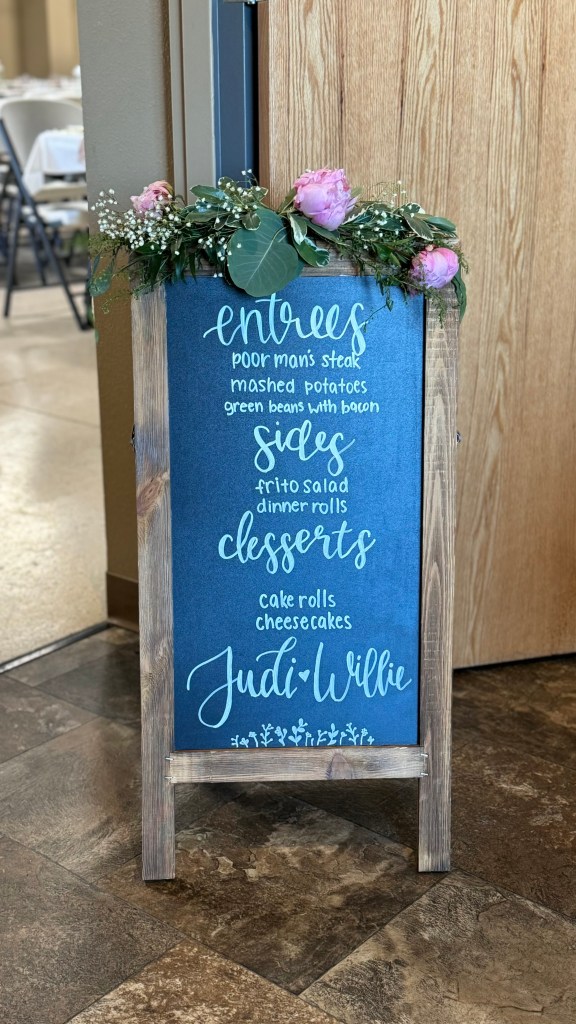 entrees
poor man's steak
mashed potatoes
green beans with bacon
sides
frito salad
dinner rolls
desserts
cake rolls
cheesecakes
Judi ♥ Willie